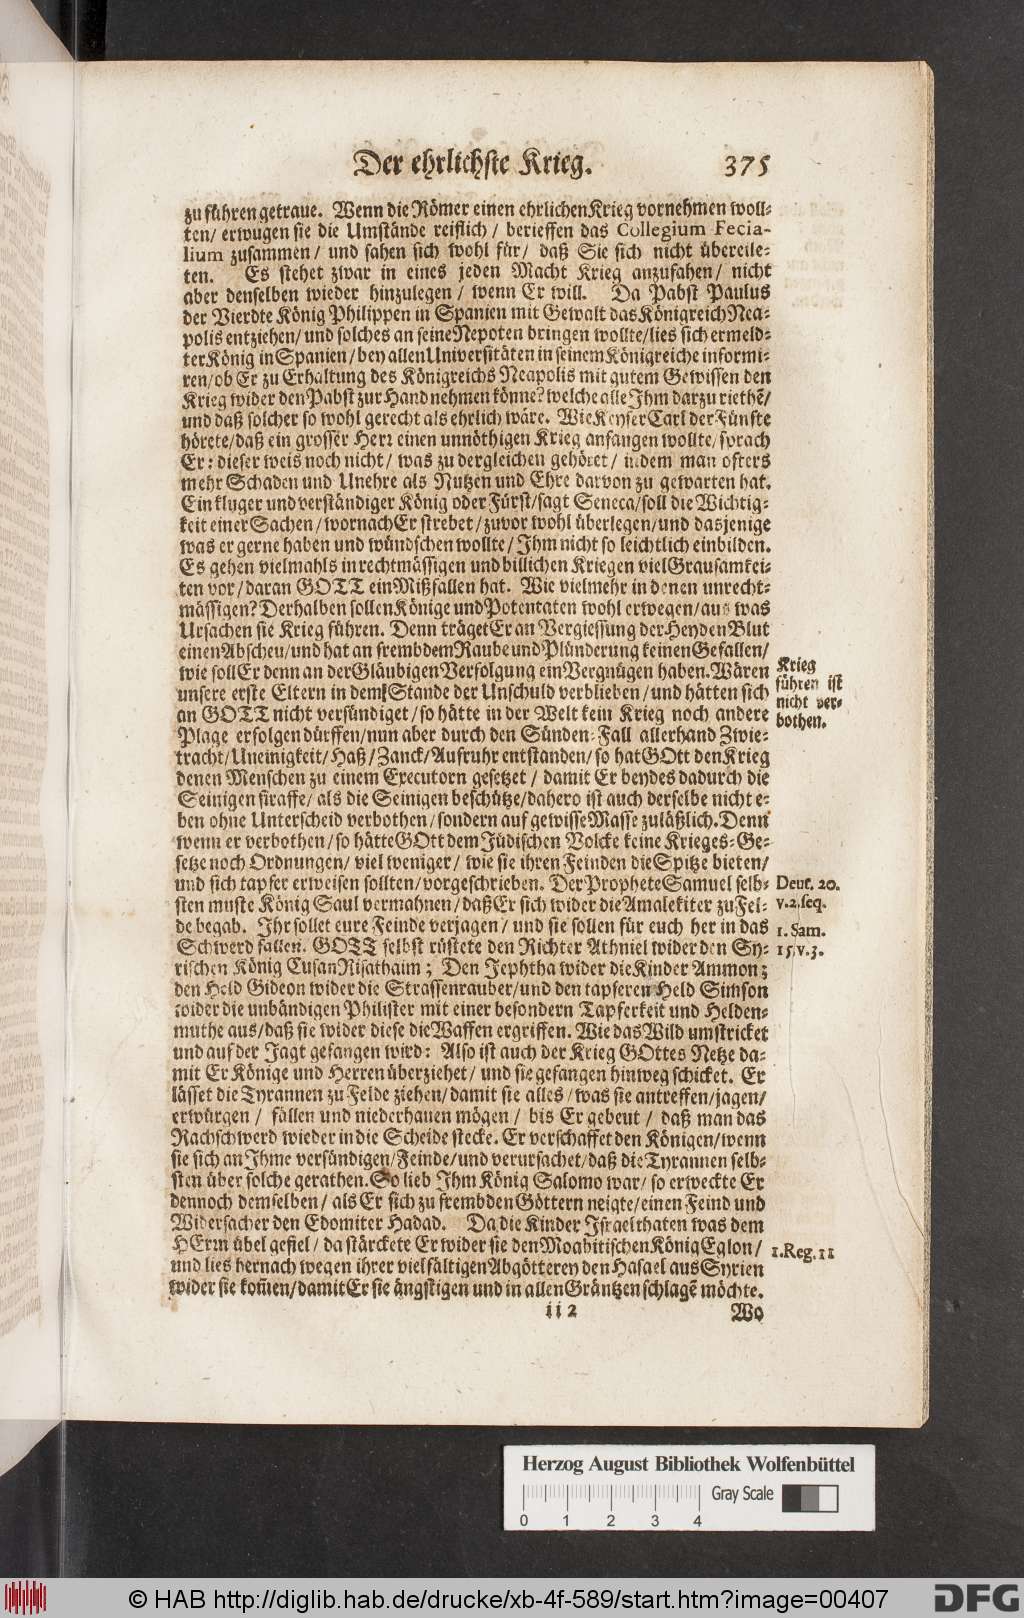 Der ehrlichste Krieg. 375
zu führen getraue. Wenn die Römer einen ehrlichen Krieg vornehmen woll-
ten/ erwugen sie die Umstände reiflich/ berieffen das Collegium Fecia-
lium zusammen/ und sahen sich wohl für/ daß Sie sich nicht übereile-
ten. Es stehet zwar in eines jeden Macht Krieg anzufahen/ nicht
aber denselben wieder hinzulegen/ wenn Er will. Da Pabst Paulus
der Vierdte König Philippen in Spanien mit Gewalt das Königreich Nea-
polis entziehen/ und solches an seine Nepoten bringen wollte/ lies sich ermeld-
ter König in Spanien/ bey allen Universitäten in seinem Königreiche informi-
ren/ ob Er zu Erhaltung des Königreichs Neapolis mit gutem Gewissen den
Krieg wider den Pabst zur Hand nehmen könne? welche alle Ihm darzu riethẽ/
und daß solcher so wohl gerecht als ehrlich wäre. Wie Keyser Carl der Fünfte
hörete/ daß ein grosser Herr einen unnöthigen Krieg anfangen wollte/ sprach
Er: dieser weis noch nicht/ was zu dergleichen gehöret/ indem man ofters
mehr Schaden und Unehre als Nutzen und Ehre darvon zu gewarten hat.
Ein kluger und verständiger König oder Fürst/ sagt Seneca/ soll die Wichtig-
keit einer Sachen/ wornach Er strebet/ zuvor wohl überlegen/ und dasjenige
was er gerne haben und wündschen wollte/ Ihm nicht so leichtlich einbilden.
Es gehen vielmahls in rechtmässigen und billichen Kriegen viel Grausamkei-
ten vor/ daran GOTT ein Mißfallen hat. Wie vielmehr in denen unrecht-
mässigen? Derhalben sollen Könige und Potentaten wohl erwegen/ aus was
Ursachen sie Krieg führen. Denn träget Er an Vergiessung der Heyden Blut
einen Abscheu/ und hat an frembdem Raube und Plünderung keinen Gefallen/
wie soll Er denn an der Gläubigen Verfolgung ein Vergnügen haben. Wären
unsere erste Eltern in dem Stande der Unschuld verblieben/ und hätten sich
an GOTT nicht versündiget/ so hätte in der Welt kein Krieg noch andere
Plage erfolgen dürffen/ nun aber durch den Sünden-Fall allerhand Zwie-
tracht/ Uneinigkeit/ Haß/ Zanck/ Aufruhr entstanden/ so hat GOtt den Krieg
denen Menschen zu einem Executorn gesetzet/ damit Er beydes dadurch die
Seinigen straffe/ als die Seinigen beschütze/ dahero ist auch derselbe nicht e-
ben ohne Unterscheid verbothen/ sondern auf gewisse Masse zuläßlich. Denn
wenn er verbothen/ so hätte GOtt dem Jüdischen Volcke keine Krieges-Ge-
setze noch Ordnungen/ viel weniger/ wie sie ihren Feinden die Spitze bieten/
und sich tapfer erweisen sollten/ vorgeschrieben. Der Prophete Samuel selb-
sten muste König Saul vermahnen/ daß Er sich wider die Amalekiter zu Fel-
de begab. Ihr sollet eure Feinde verjagen/ und sie sollen für euch her in das
Schwerd fallen. GOTT selbst rüstete den Richter Athniel wider den Sy-
rischen König Cusan Risathaim; Den Jephtha wider die Kinder Ammon;
den Held Gideon wider die Strassenrauber/ und den tapferen Held Simson
wider die unbändigen Philister mit einer besondern Tapferkeit und Helden-
muthe aus/ daß sie wider diese die Waffen ergriffen. Wie das Wild umstricket
und auf der Jagt gefangen wird: Also ist auch der Krieg GOttes Netze da-
mit Er Könige und Herren überziehet/ und sie gefangen hinweg schicket. Er
lässet die Tyrannen zu Felde ziehen/ damit sie alles/ was sie antreffen/ jagen/
erwürgen/ fällen und niederhauen mögen/ bis Er gebeut/ daß man das
Rachschwerd wieder in die Scheide stecke. Er verschaffet den Königen/ wenn
sie sich an Ihme versündigen/ Feinde/ und verursachet/ daß die Tyrannen selb-
sten über solche gerathen. So lieb Ihm König Salomo war/ so erweckte Er
dennoch demselben/ als Er sich zu frembden Göttern neigte/ einen Feind und
Widersacher den Edomiter Hadad. Da die Kinder Israel thaten was dem
HErrn übel gefiel/ da stärckete Er wider sie den Moabitischen König Eglon/
und lies hernach wegen ihrer vielfältigen Abgötterey den Hasael aus Syrien
wider sie kom̃en/ damit Er sie ängstigen und in allen Gräntzen schlagẽ möchte.
ii 2 Wo
Krieg
führen ist
nicht ver-
bothen.
Deut. 20.
v. 2. seq.
1. Sam.
15. v. 3.
1. Reg. 11
Herzog August Bibliothek Wolfenbüttel
Gray Scale
0 1 2 3 4
© HAB http://diglib.hab.de/drucke/xb-4f-589/start.htm?image=00407
DFG